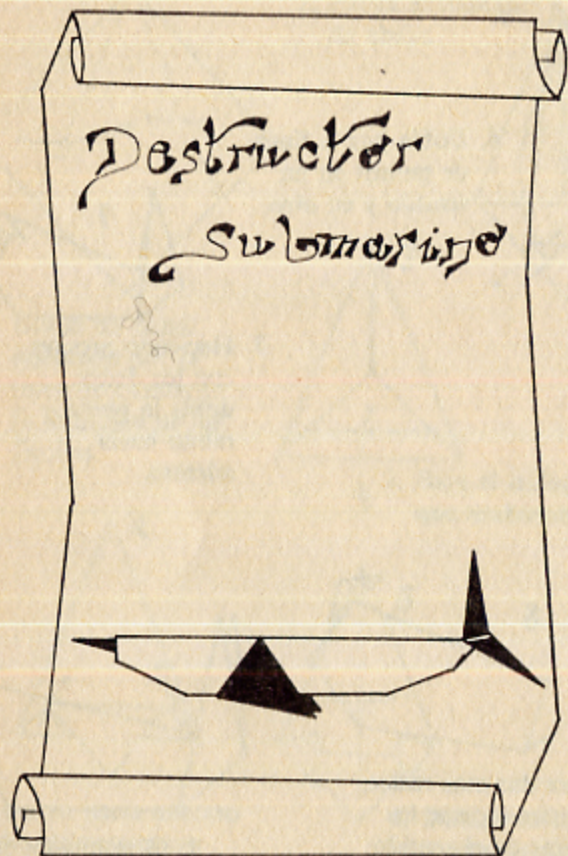 Destructer
Submarine